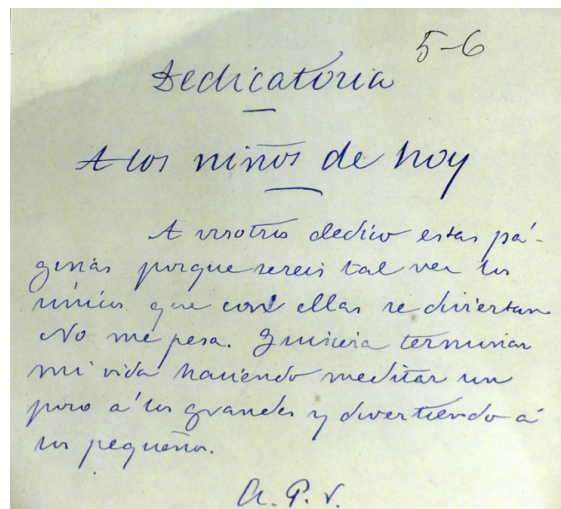 5-6
Dedicatoria
A los niños de hoy
A vosotros dedico estas pá-
ginas porque sereis tal vez los
únicos que con ellas se diviertan
No me pesa. Quisiera terminar
mi vida haciendo meditar un
poco á los grandes y divertiendo á
los pequeños.
A. P. V.